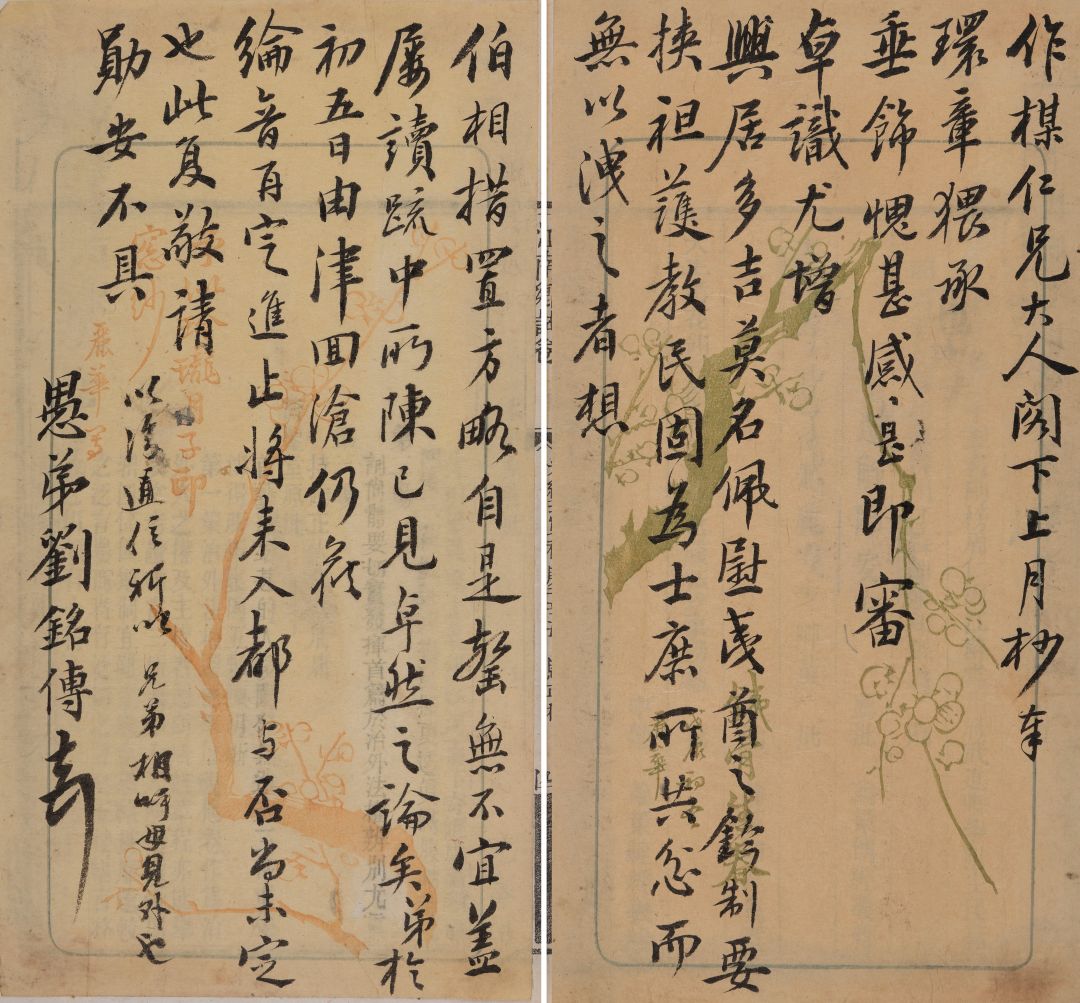 作楳仁兄大人閣下上月杪奉
環章猥承
垂飾愧甚感甚即審
卓識尤增
興居多吉莫名佩慰夷酋之鈐制要
挾袒護教民固為士庶所共忿而
無以洩之者想
伯相措置方略自是罄無不宜蓋
屢讀疏中所陳已見卓然之論矣弟於
初五日由津回滄仍候
綸音再定進止將来入都与否尚未定
也此复敬請
勛安不具
以後通信祈以兄弟相呼毋見外也
愚弟劉銘傳